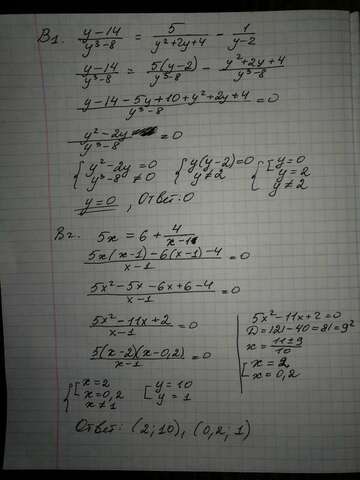 В1. (y-14)/(y³-8) = 5/(y²+2y+4) - 1/(y-2)
(y-14)/(y³-8) = 5(y-2)/(y³-8) - (y²+2y+4)/(y³-8)
(y-14-5y+10+y²+2y+4)/(y³-8) = 0
(y²-2y)/(y³-8) = 0
{ y²-2y=0 { y(y-2)=0 { [ y=0
y³-8≠0 y≠2 y=2
y≠2
y=0, Ответ: 0
В2. 5x = 6 + 4/(x-1)
(5x(x-1)-6(x-1)-4)/(x-1) = 0
(5x²-5x-6x+6-4)/(x-1) = 0
(5x²-11x+2)/(x-1) = 0
5(x-2)(x-0,2)/(x-1) = 0
5x²-11x+2=0
D=121-40=81=9²
x = (11±9)/10
[ x=2
x=0,2
{ [ x=2 [ y=10
x=0,2 y=1
x≠1
Ответ: (2;10), (0,2;1)